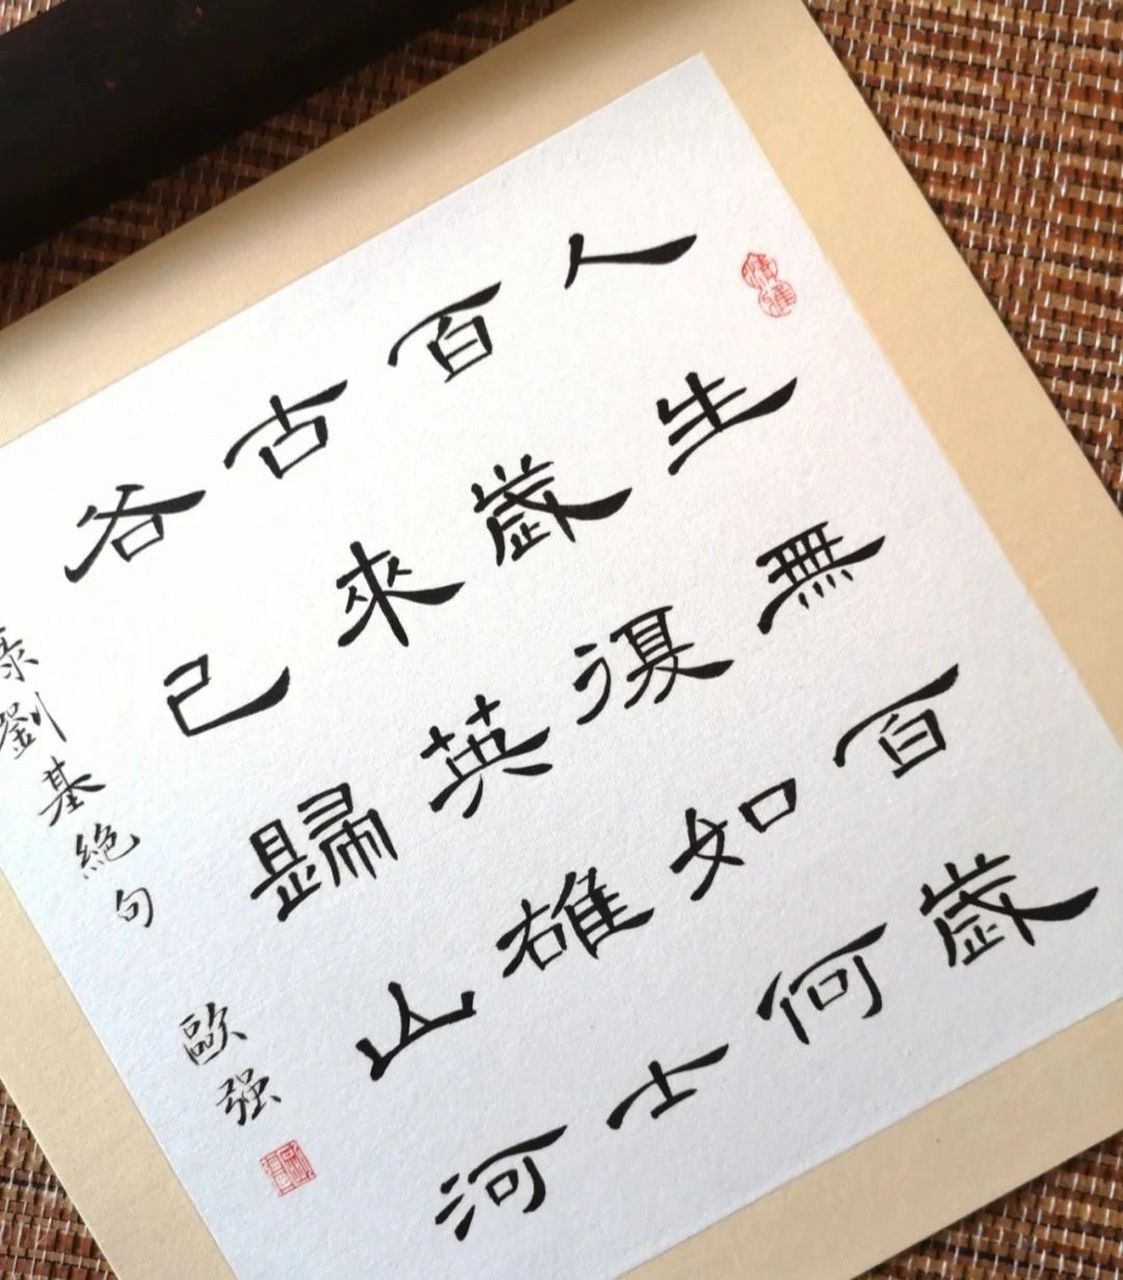 清雅
人生無百歲
百歲復如何
古來英雄士
各已歸山河
劉基絶句
歐强